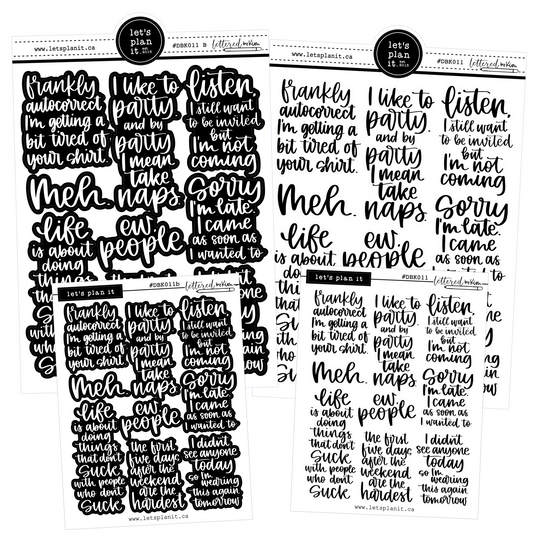 www.letsplanit.ca
let's
plan
it.
#DBK011 B
lettered
frankly
autocorrect
I'm getting a
bit tired of
your shirt.
I like to
party.
and by
party
I mean
take
naps.
listen,
I still want
to be invited
but
I'm not
coming
Meh.
Sorry
I'm late.
I came
as soon as
I wanted to
life
is about
doing
things
ew.
people
www.letsplanit.ca
let's
plan
it.
#DBK011
lettered
frankly
autocorrect
I'm getting a
bit tired of
your shirt.
I like to
party.
and by
party
I mean
take
naps.
listen,
I still want
to be invited
but
I'm not
coming
Meh.
Sorry
I'm late.
I came
as soon as
I wanted to
life
is about
ew.
people
let's plan it
#DBK011b
lettered
frankly
autocorrect
I'm getting a
bit tired of
your shirt.
I like to
party.
and by
party
I mean
take
naps.
listen,
I still want
to be invited
but
I'm not
coming
Meh.
Sorry
I'm late.
I came
as soon as
I wanted to
life
is about
doing
things
that don't
suck
with people
who don't
suck
ew.
people
the first
five days
after the
weekend
are the
hardest
I didn't
see anyone
today
so I'm
wearing
this again
tomorrow
www.letsplanit.ca
let's plan it
#DBK011
lettered
frankly
autocorrect
I'm getting a
bit tired of
your shirt.
I like to
party.
and by
party
I mean
take
naps.
listen,
I still want
to be invited
but
I'm not
coming
Meh.
Sorry
I'm late.
I came
as soon as
I wanted to
life
is about
doing
things
that don't
suck
with people
who don't
suck
ew.
people
the first
five days
after the
weekend
are the
hardest
I didn't
see anyone
today
so I'm
wearing
this again
tomorrow
www.letsplanit.ca